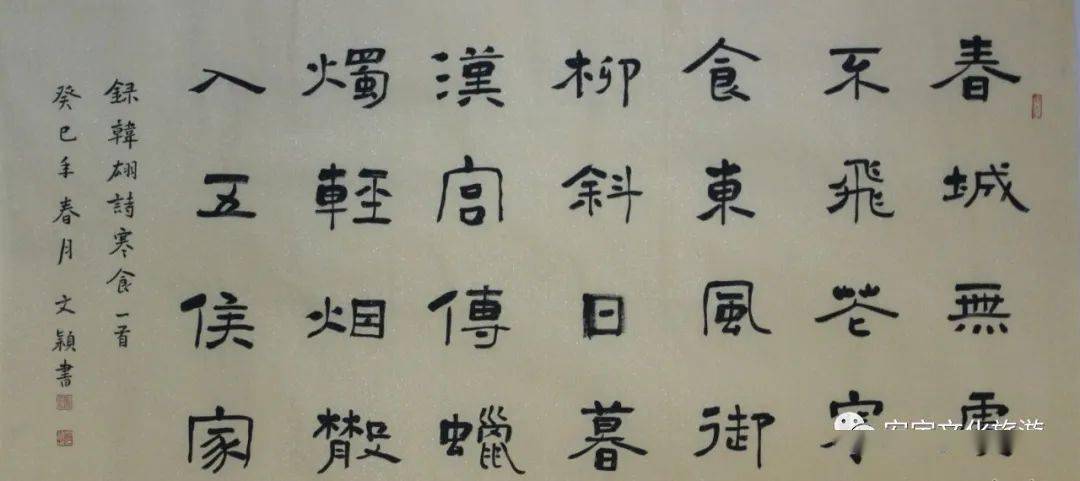 春城無處
不飛花寒
食東風御
柳斜日暮
漢宮傳蠟
燭輕烟散
入五侯家
録韓翃詩寒食一首
癸巳年春月 文穎書
文化旅游